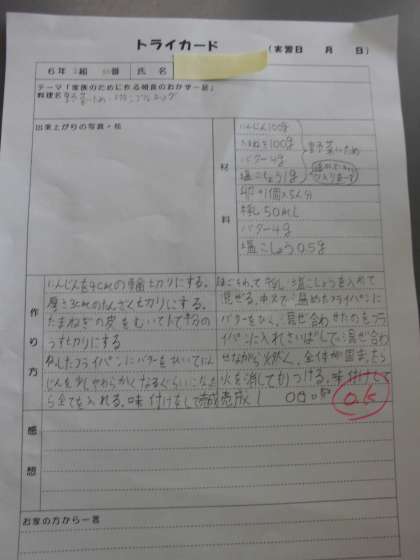 トライカード
(実習日 月 日)
6年 組 番 氏名
テーマ「家族のために作る朝食のおかず一品」
料理名 野菜いため・スクランブルエッグ
出来上がりの写真・絵
材料
にんじん100g
たまねぎ100g
バター4g
塩こしょう1g
野菜いため
卵1個×5人分
牛乳50mL
バター4g
塩こしょう0.5g
作り方
にんじんを4cmの輪切りにする。
厚さ3mmのたんざく切りにする。
たまねぎの皮をむいてたて半分の
うす切りにする
熱したフライパンにバターをひいてにん
じんを少しやわらかくなるくらいになった
ら全てを入れる。味付けをして完成
卵をわって牛乳、塩こしょうを入れて
混ぜる。中火で温めたフライパンに
バターをひく。混ぜ合わせたものをフラ
イパンに入れさいばしで混ぜ合わ
せながら火がく。全体が固まったら
火を消してもりつける。味付けして
完成!
O.K
感想
お家の方から一言